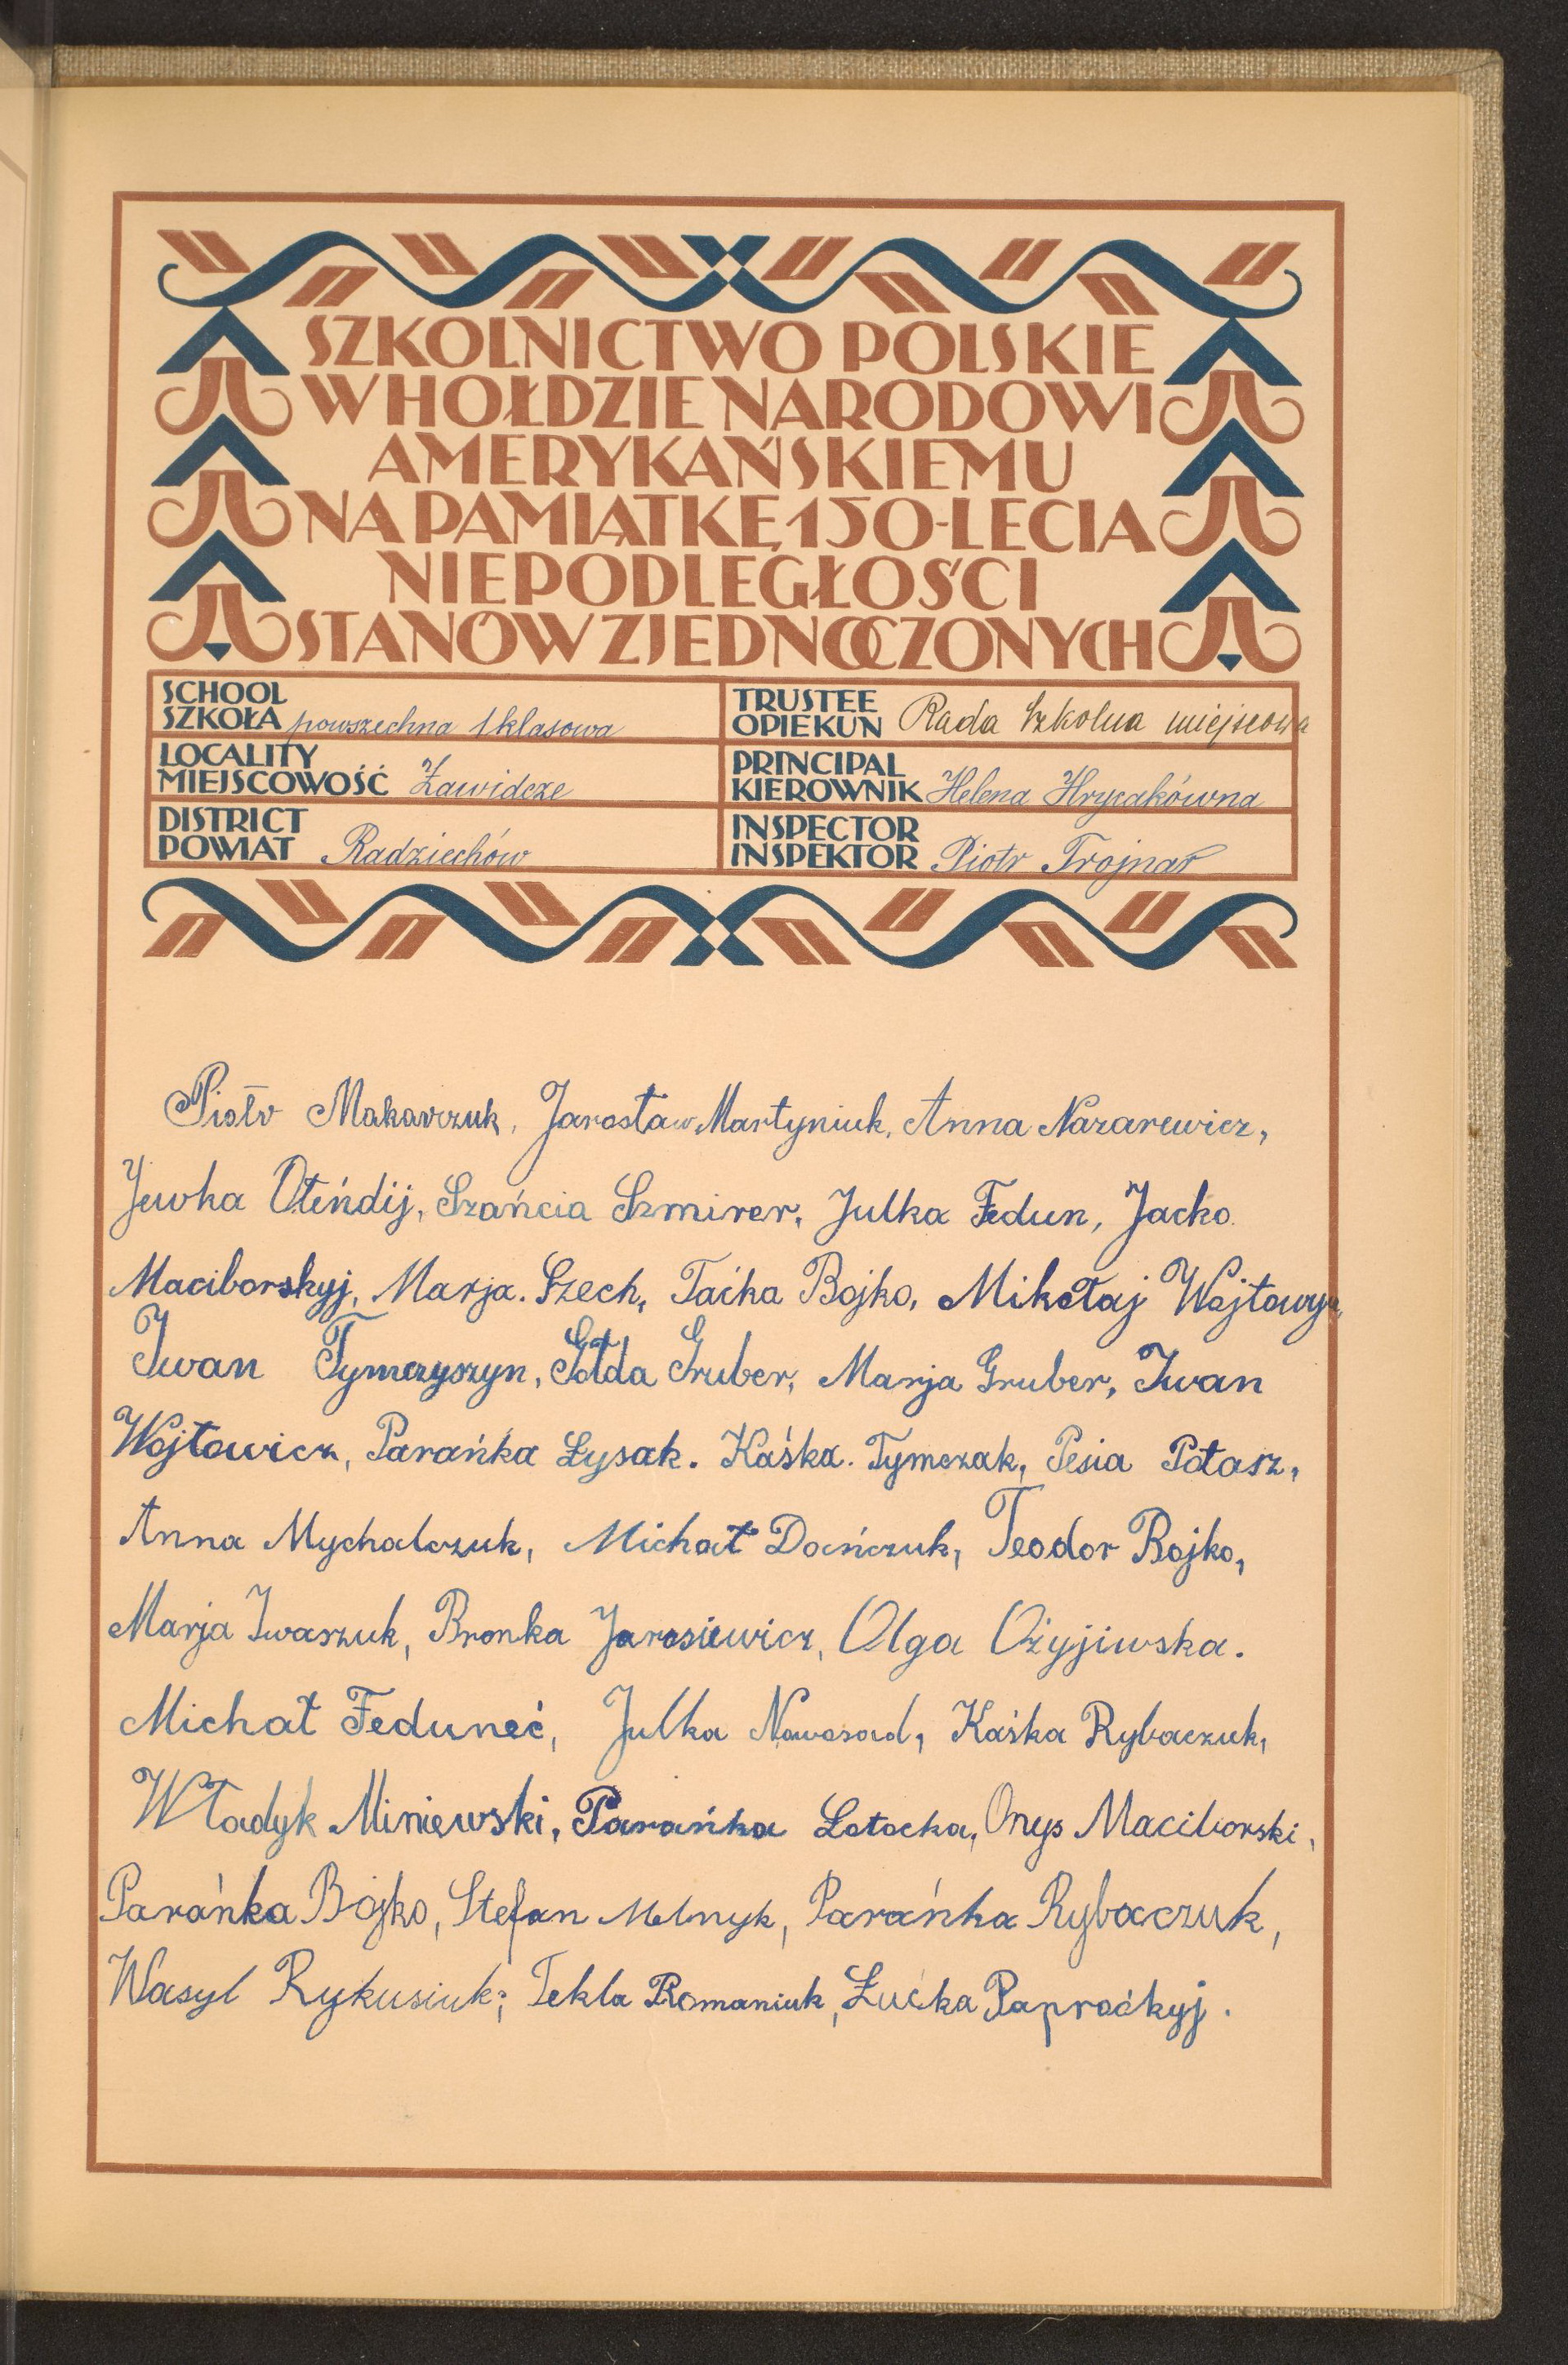 SZKOLNICTWO POLSKIE
W HOŁDZIE NARODOWI
AMERYKAŃSKIEMU
NA PAMIĄTKĘ 150-LECIA
NIEPODLEGŁOŚCI
STANÓW ZJEDNOCZONYCH
SCHOOL
SZKOŁA powszechna 1 klasowa
LOCALITY
MIEJSCOWOŚĆ Zawidcze
DISTRICT
POWIAT Radziechów
TRUSTEE
OPIEKUN Rada Szkolna miejscowa
PRINCIPAL
KIEROWNIK Helena Hrycakówna
INSPECTOR
INSPEKTOR Piotr Trojnar
Piotr Makarczuk, Jarosław Martyniuk, Anna Nazarewicz,
Jewka Oteńdij, Szańcia Szmirer, Julka Fedun, Jacko
Maciborskyj, Marja. Szech, Taćka Bojko, Mikołaj
Iwan Tymczyszyn, Gołda Gruber, Marja Gruber, Iwan
Wojtowicz, Parańka Łysak. Kaśka. Tymczak, Pesia Potasz,
Anna Mychalczuk, Michał Dańczuk, Teodor Bojko,
Marja Iwaszuk, Bronka Jarosiewicz, Olga Ożyjiwska.
Michał Feduneć, Julka Nowosad, Kaśka Rybaczuk,
Władyk Miniewski, Parańka Łotocka, Onys Maciborski,
Parańka Bojko, Stefan Melnyk, Parańka Rybaczuk,
Wasyl Rykusiuk; Tekla Romaniuk, Łućka Paproćkyj.